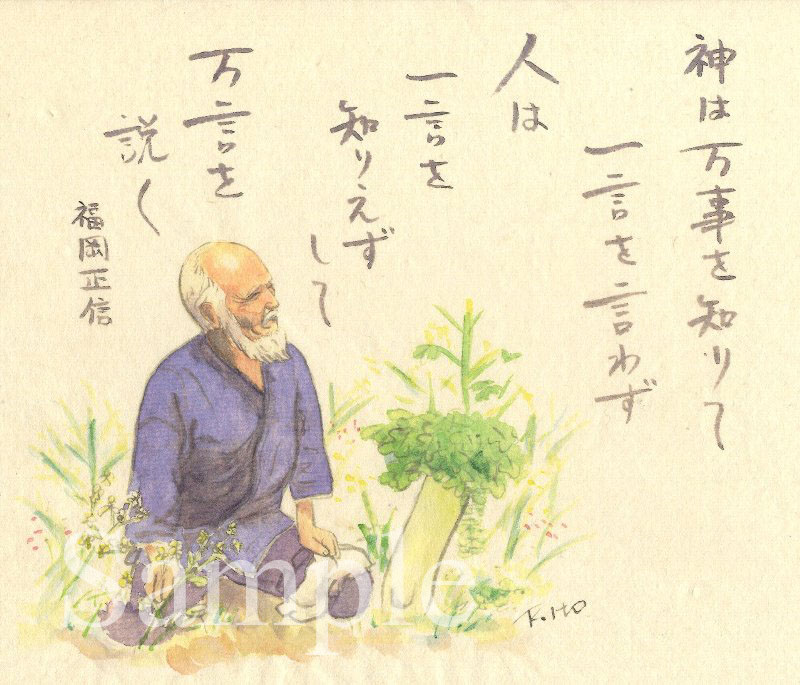 神は万事を知りて
一言を言わず
人は
一言を
知りえず
して
万言を
説く
福岡正信
K.ITO
Sample